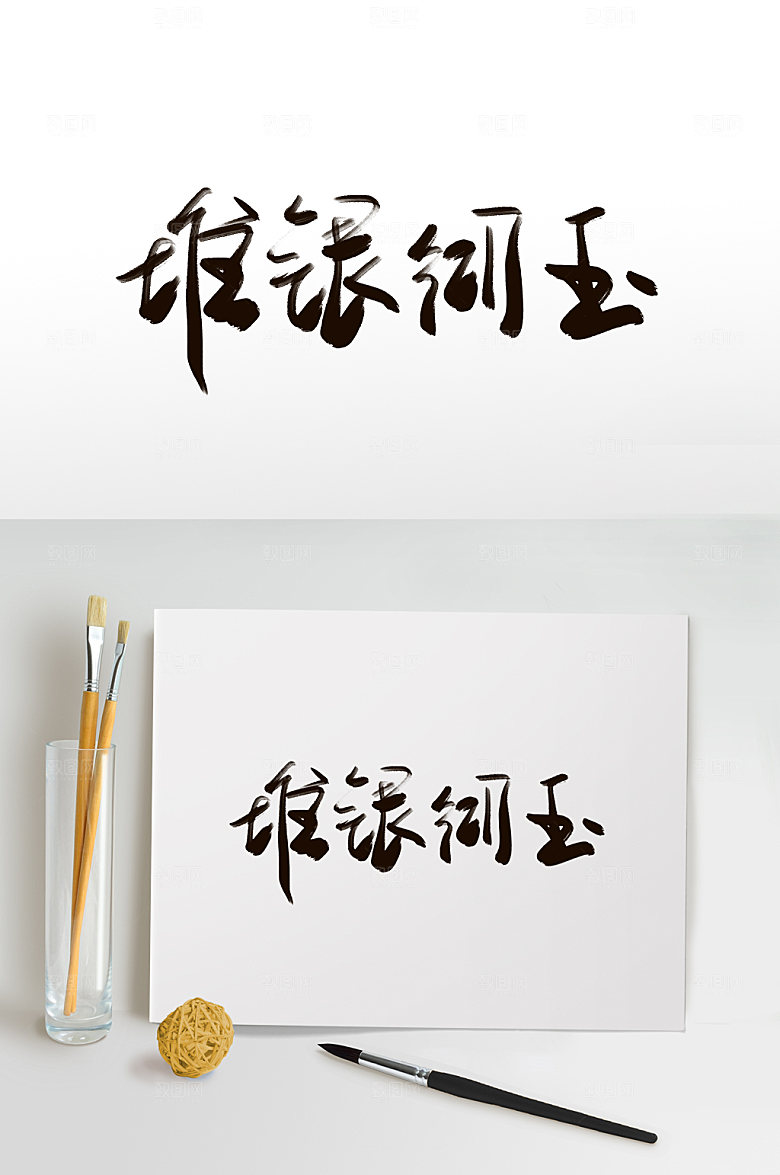 堆银砌玉
堆银砌玉